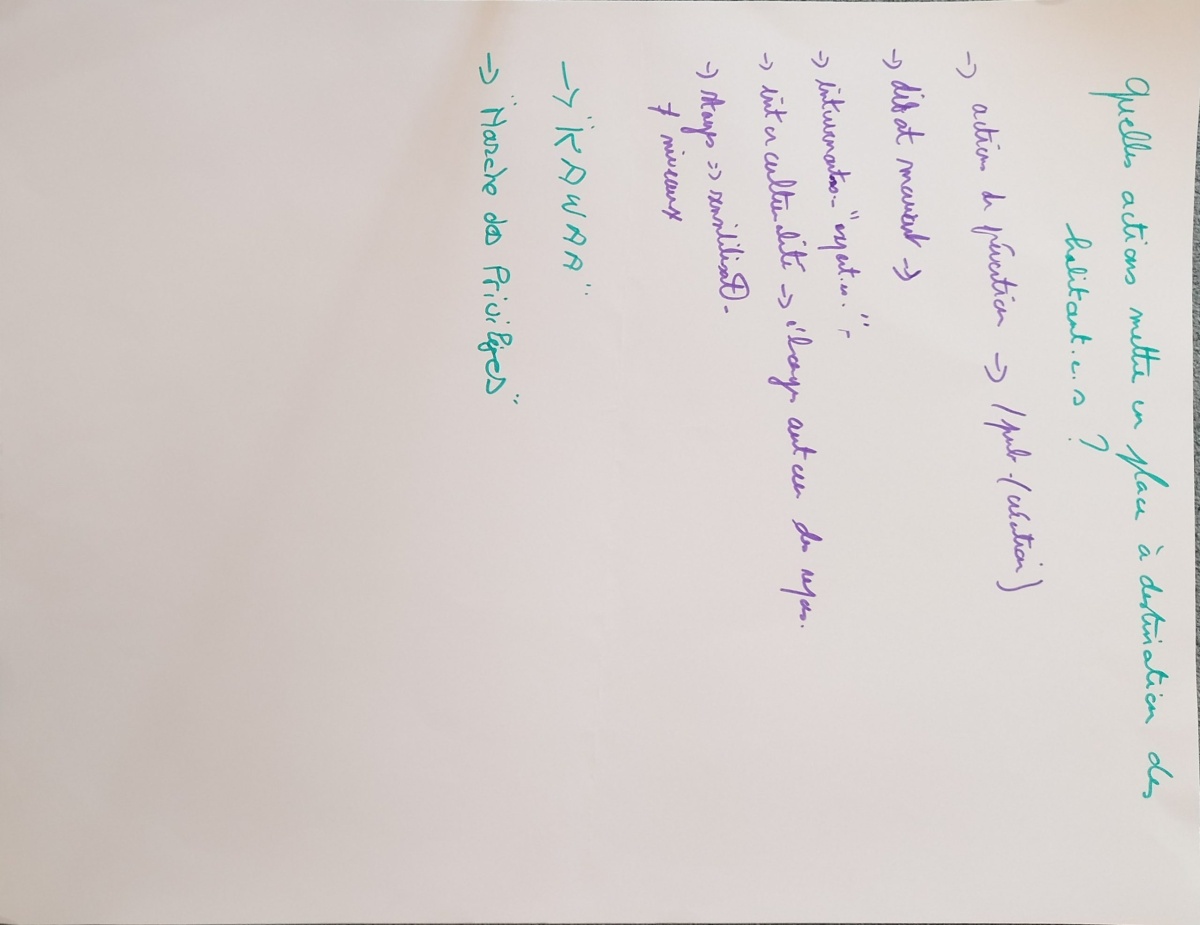 Quelles actions mettre en place à destination des
habitant.e.s ?
-> actions de prévention -> (pub. (création)
-> débat mouvant ->
-> intervenantes.. "expert.es.",
-> interculturalité -> échanges autour des repas.
-> stages => sensibilisat°.
≠ niveaux
-> "KAWAA"
-> "Marche des Privilèges"